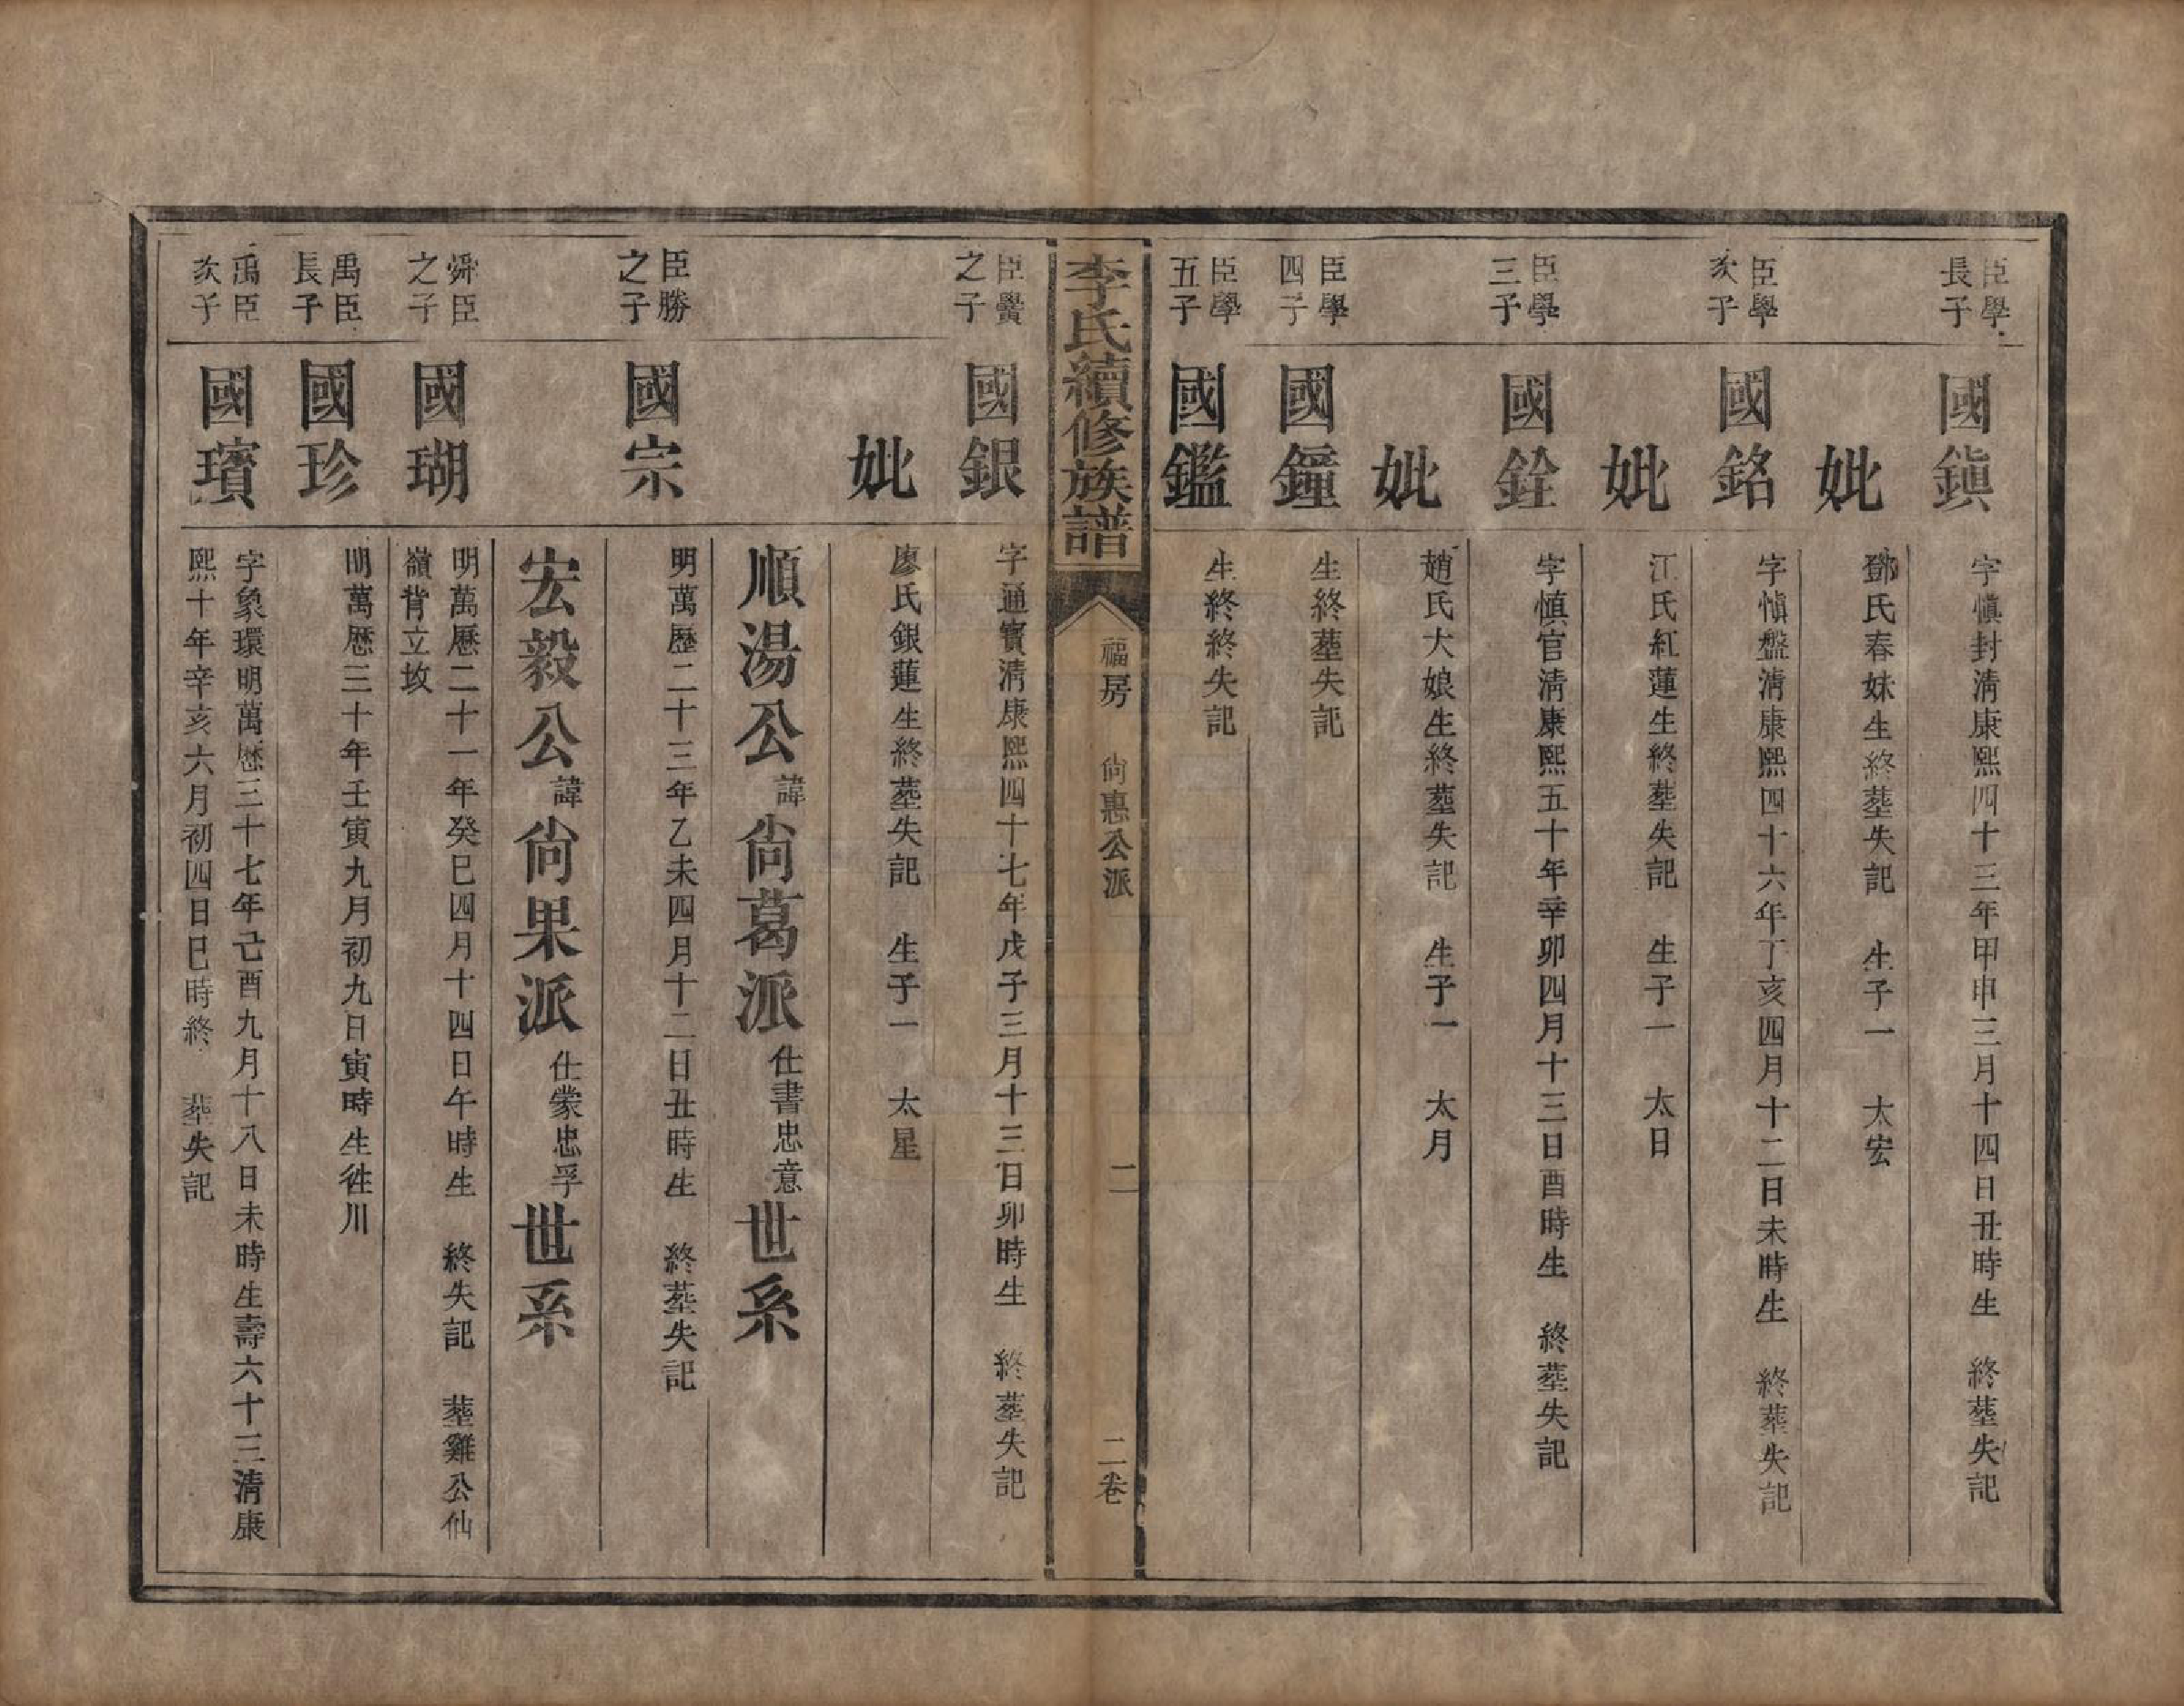 臣學
長子
國鎭
字愼封淸康熙四十三年甲申三月十四日丑時生　終塟失記
妣
鄧氏春妹生終塟失記　生子一　太宏
臣學
次子
國銘
字愼盤淸康熙四十六年丁亥四月十二日未時生　終葬失記
妣
江氏紅蓮生終塟失記　生子一　太日
臣學
三子
國銓
字愼官淸康熙五十年辛卯四月十三日酉時生　終塟失記
妣
趙氏大娘生終塟失記　生子一　太月
臣學
四子
國鐘
生終塟失記
臣學
五子
國鑑
生終終失記
李氏續修族譜
福房　尙惠公派
二
二卷
臣黌
之子
國銀
字通寳淸康熙四十七年戊子三月十三日卯時生　終塟失記
妣
廖氏銀蓮生終塟失記　生子一　太星
順湯公諱尙葛派仕書忠意世系
臣勝
之子
國宗
明萬歷二十三年乙未四月十二日丑時生　終塟失記
宏毅公諱尙果派仕蒙忠孚世系
舜臣
之子
國瑚
明萬歷二十一年癸巳四月十四日午時生　終失記　塟雞公仙
嶺背立坟
禹臣
長子
國珍
明萬歷三十年壬寅九月初九日寅時生徃川
禹臣
次子
國璸
字象環明萬歷三十七年己酉九月十八日未時生壽六十三淸康
熙十年辛亥六月初四日巳時終　葬失記